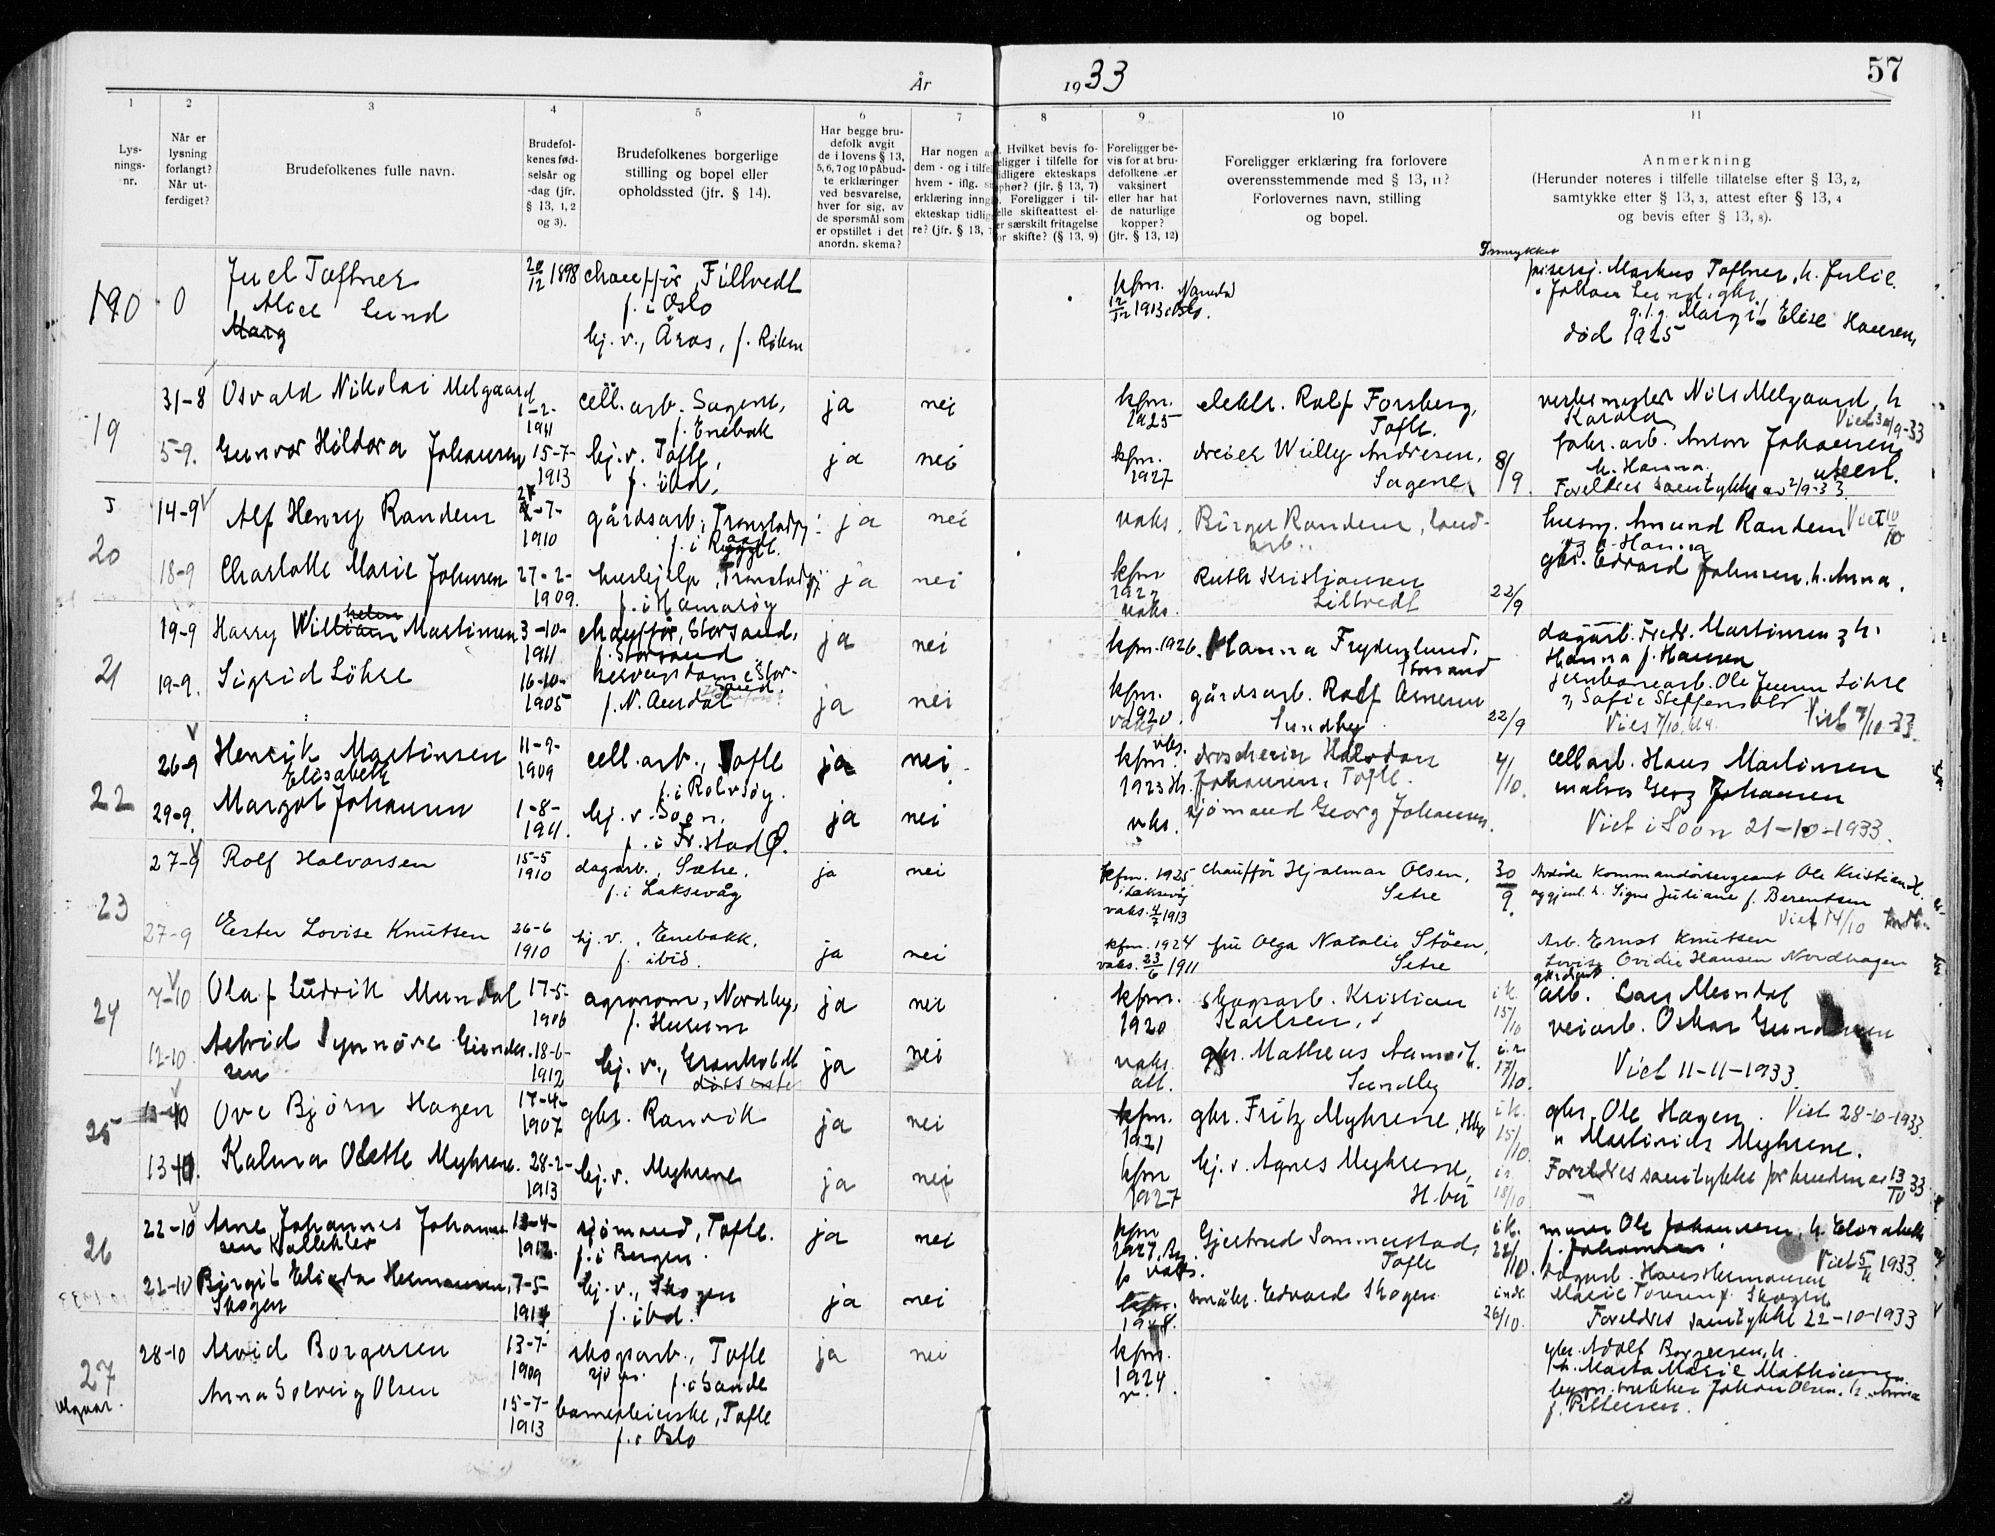 År 1933
57
1
2
3
4
5
6
7
8
9
10
11
Lys-
nings-
nr.
Når er
lysning
forlangt?
Når ut-
ferdiget?
Brudefolkenes fulle navn.
Brudefol-
kenes fød-
selsår og
-dag (jfr.
§ 13, 1, 2
og 3).
Brudefolkenes borgerlige
stilling og bopel eller
opholdssted (jfr. § 14).
Har begge bru-
defolk avgit
de i lovens § 13,
5, 6, 7 og 10 påbud-
te erklæringer
ved besvarelse,
hver for sig, av
de spørsmål som
er opstillet i det
anordn. skema?
Har nogen a
dem - og i tilfel
hvem - iflg. s
erklæring inng
ekteskap tidlig
re? (jfr. § 13,
Hvilket bevis fo-
eligger i tilfelle for
idligere ekteskaps
phør? (jfr. § 13, 7)
Foreligger i til-
elle skifteattest el-
er særskilt fritagelse
or skifte? (§ 13, 9)
Foreligger be-
vis for at bru-
defolkene er
vaksinert
eller har hat
de naturlige
kopper?
(jfr. § 13, 12)
Foreligger erklæring fra forlovere
overensstemmende med § 13, 11?
Forlovernes navn, stilling
og bopel.
Anmerkning
(Herunder noteres i tilfelle tillatelse efter § 13, 2,
samtykke efter § 13, 3, attest efter § 13, 4
og bevis efter § 13, 8).
190
0
Juel Toftner
Alice Lund
Marg
20/12 1898
chauffør, Filtvedt
f. i Oslo
hj. v., Åros, f. Røken
kfm.
12/12 1913 Oslo.
Markus Toftner, h. Julie
Johan Lund, gbr.
g.l.g. Margit Elise Hansen,
død 1925
19
31-8
5-9.
Osvald Nikolai Melgaard
Gunvor Hildora Johansen
1-2-
1911
15-7-
1913
cell. arb. Sagene,
f. Enebak
hj. v. Tofte,
f. ibd.
ja
nei
ja
nei
kfm.
1925
kfm.
1927
elektr. Rolf Forsberg,
Tofte.
dreier Willy Andresen,
Sagene
8/9
verksmester Nils Melgaard, h
Karola
Viet 30/9-33
fabr. arb. Anton Johansen
h. Hanna.
Foreldres samtykke av 2/9-33.
20
14-9
18-9
Alf Henry Randem
Charlotte Marie Johnsen
-7-
1910
27-2-
1909.
gårdsarb., Tronstad
f. i Rygge.
hushjelp, Tronstad
f. i Hamarøy
ja
nei
ja
nei
vaks.
kfm
1927
vaks.
Birger Randem, land-
arb.
Ruth Kristiansen
Filtvedt
22/9
husm. Amund Randem
h. Hanna
Viet 10/10
gbr. Edvard Johnsen, h. Anna.
21
19-9
19-9.
Harry Wilhelm Martinsen
Sigrid Löhre
3-10-
1911
16-10-
1905
chauffør, Storsand,
f. Storsand
f. N. Aurdal
ja
nei
ja
nei
kfm. 1926.
kfm.
1920.
vaks
Hanna Frydenlund,
Storsand
gårdsarb. Rolf Arnesen
Sundby
22/9
dagarb. Fredr. Martinsen & h.
Hanna f. Hansen
jernbanearb. Ole Jensen Löhre
Sofie Steffensdtr
Vies 7/10 kl 4.
Viet 7/10-33.
22
26-9
29-9.
Henrik Martinsen
Elisabeth
Margot Johansen
11-9-
1909
1-8-
1911.
cell. arb., Tofte
f. i Rolvsøy.
hj. v. Soon,
f. i Fr.stad
ja
nei
ja
nei
vks.
kfm.
1923
vks.
Halvdan
Johansen, Tofte.
sjömand Georg Johansen.
4/10.
cell arb. Hans Martinsen
maler Georg Johansen
Viet i Soon 21-10-1933.
23
27-9
27-9
Rolf Halvorsen
Ester Lovise Knutsen
15-5
1910
26-6
1910
dagarb., Sætre.
f. i Laksevåg
hj. v., Enebakk.
f. ibid.
ja
nei
ja
nei
kfm. 1925
i Laksevåg
vaks. 4/7 1913
kfm. 1924
vaks. 23/6 1911
chauffør Hjalmar Olsen,
Setre
fru Olga Natalie Støen,
Setre
30/9.
Avdøde Kommandørsergeant Ole Kristian H.
og gjenl. h. Signe Juliane f. Berentsen
Viet 14/10
Arb. Ernst Knutsen
Lovise Ovidie Hansen Nordhagen
24
7-10
12-10
Olaf Ludvik Mundal
Astrid Synnøve Gunder-
sen
17-5-
1906
18-6-
1912
agronom, Nordby,
f. Hurum
hj. v., Granholdt
ja
nei
ja
nei
kfm.
1920
vaks.
att.
skogsarb. Kristian
Karlsen,
gbr. Matheus Aamodt
Sundby
i k.
15/10
17/10.
gårdsarb.
arb. Lars Mundal
veiarb. Oskar Gundersen
Viet 11-11-1933.
25
13-10
13-10.
Ove Bjørn Hagen
Kalma Olette Myhrene.
17-4-
1907
28-2-
1913
gbr. Ranvik
hj. v. Myhrene
ja
nei
ja
nei
kfm.
1921
kfm
1927
gbr. Fritz Myhrene,
hj. v. Agnes Myhrene,
i k.
15/10.
18/10
gbr. Ole Hagen. Viet 28-10-1933.
" Martinius Myhrene.
Foreldres samtykke for bruden av 13/10 33
26
22-10
22-10
Arne Johannes Johann-
sen Kallekler
Birgit Elida Hermansen,
Skogen
-4-
1912.
7-5-
191
sjömand, Tofte.
f. i Bergen.
hj. v., Skogen
f. ibd.
ja
nei
ja
nei
kfm
1927,
vaks.
kfm.
1928.
Gjertrud Sommerstad,
Tofte
småbr. Edvard Skogen
i k.
22/10.
26/10.
murer Ole Johannsen, h. Elisabeth
f. Johannsen
Viet 5/11 1933.
dagarb. Hans Hermansen
Foreldres samtykke 22-10-1933
27
28-10
Arvid Borgersen
Anna Solveig Olsen
13-7-
1909
15-7-
1913
skogarb., Tofte
f. i Sande
barnepleierske, Tofte
f. i Oslo
ja
nei
kfm.
1924.
v.
gbr. Adolf Borgersen, h.
Marta Marie Mathisen
Johan Olsen, h. Anna
f. Pettersen.